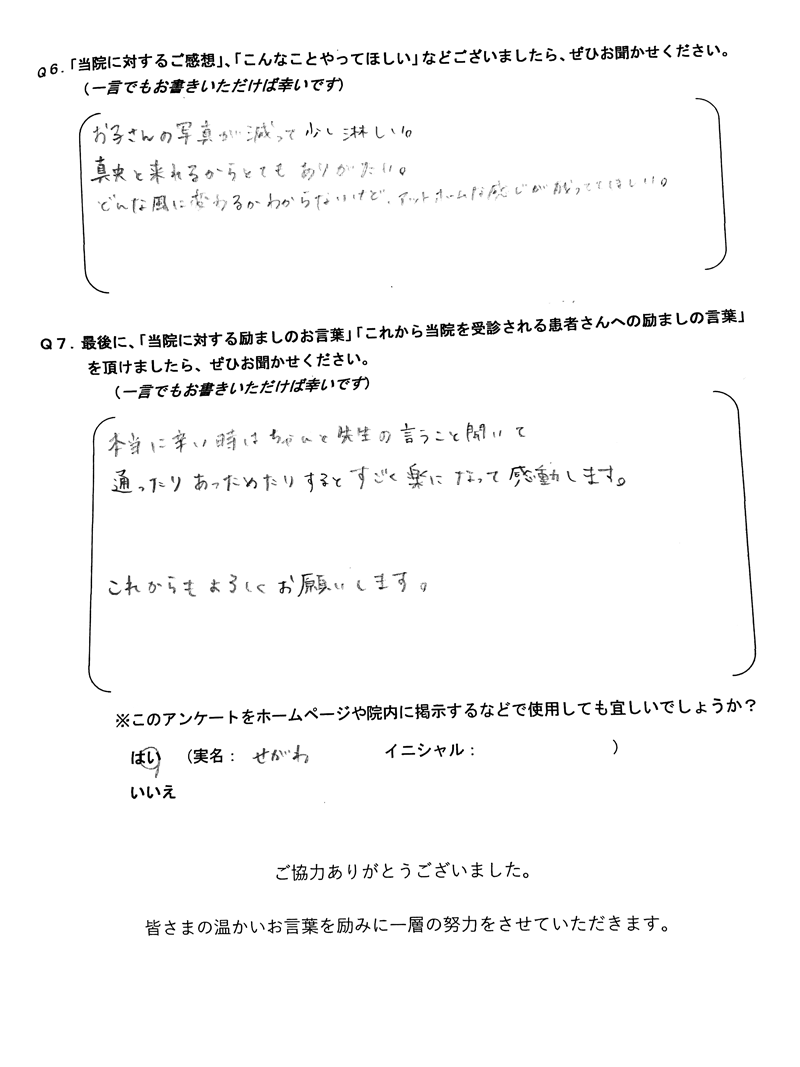 Q6.「当院に対するご感想」、「こんなことやってほしい」などございましたら、ぜひお聞かせください。
(一言でもお書きいただけば幸いです)
お子さんの写真が減って少し淋しい。
真央と来れるからとてもありがたい。
どんな風に変わるかわからないけど、アットホームな感じが残っててほしい。
Q7.最後に、「当院に対する励ましのお言葉」「これから当院を受診される患者さんへの励ましの言葉」
を頂けましたら、ぜひお聞かせください。
(一言でもお書きいただけば幸いです)
本当に辛い時はちゃんと先生の言うこと聞いて
通ったりあっためたりするとすごく楽になって感動します。
これからもよろしくお願いします。
※このアンケートをホームページや院内に掲示するなどで使用しても宜しいでしょうか?
はい (実名: せがわ イニシャル: )
いいえ
ご協力ありがとうございました。
皆さまの温かいお言葉を励みに一層の努力をさせていただきます。